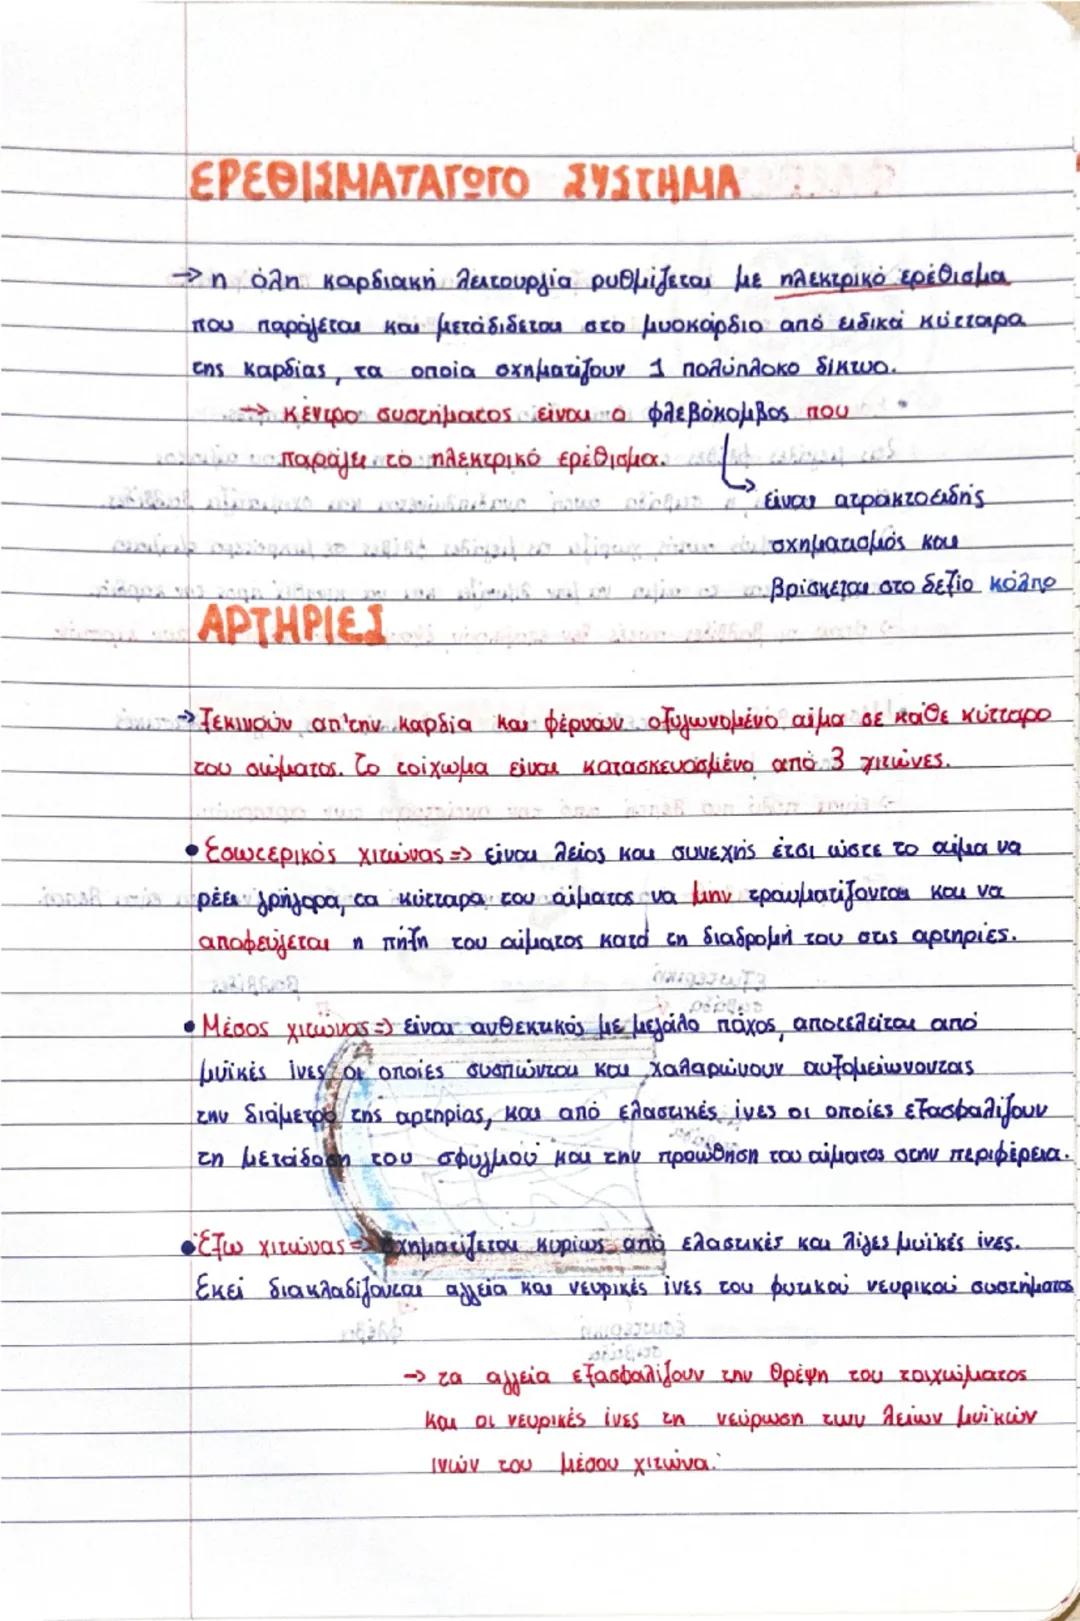 ΕΡΕΘΙΣΜΑΤΑΓΩΓΟ ΣΥΣΤΗΜΑ
→ η όλη καρδιακή λειτουργία ρυθμίζεται με ηλεκτρικό ερέθισμα
που παράγεται και μεταδίδεται στο μυοκάρδιο από ειδικά κύτταρα
της καρδίας, τα οποία σχηματίζουν 1 πολύπλοκο δίκτυο.
→ κέντρο συστήματος είναι ο φλεβόκομβος που
παράγει το ηλεκτρικό ερέθισμα.
→ είναι ατρακτοειδής
σχηματισμός και
βρίσκεται στο δεξίο κόλπο
ΑΡΤΗΡΙΕΣ
→ Ξεκινούν απ'την καρδία και φέρνουν οξυγωνομένο αίμα σε κάθε κύτταρο
του σώματος. Το τοίχωμα είναι κατασκευασμένο από 3 χιτώνες.
• Εσωτερικός χιτώνας => είναι λείος και συνεχής έτσι ώστε το αίμα να
ρέει γρήγορα, τα κύτταρα του αίματος να μην τραυματίζονται και να
αποφεύγεται η πήξη του αίματος κατά τη διαδρομή του στις αρτηρίες.
• Μέσος χιτώνας => είναι ανθεκτικός με μεγάλο πάχος, αποτελείται από
μυϊκές ίνες οι οποίες συσπώνται και χαλαρώνουν αυξομειώνοντας
την διάμετρο της αρτηρίας, και από ελαστικές ίνες οι οποίες εξασφαλίζουν
τη μετάδοση του σφυγμού και την προώθηση του αίματος στην περιφέρεια.
• Έξω χιτώνας => σχηματίζεται κυρίως από ελαστικές και λίγες μυϊκές ίνες.
Εκεί διακλαδίζονται αγγεία και νευρικές ίνες του φυτικού νευρικού συστήματος
→ τα αγγεία εξασφαλίζουν την θρέψη του τοιχώματος
και οι νευρικές ίνες τη νεύρωση των λείων μυϊκών
ινών του μέσου χιτώνα.